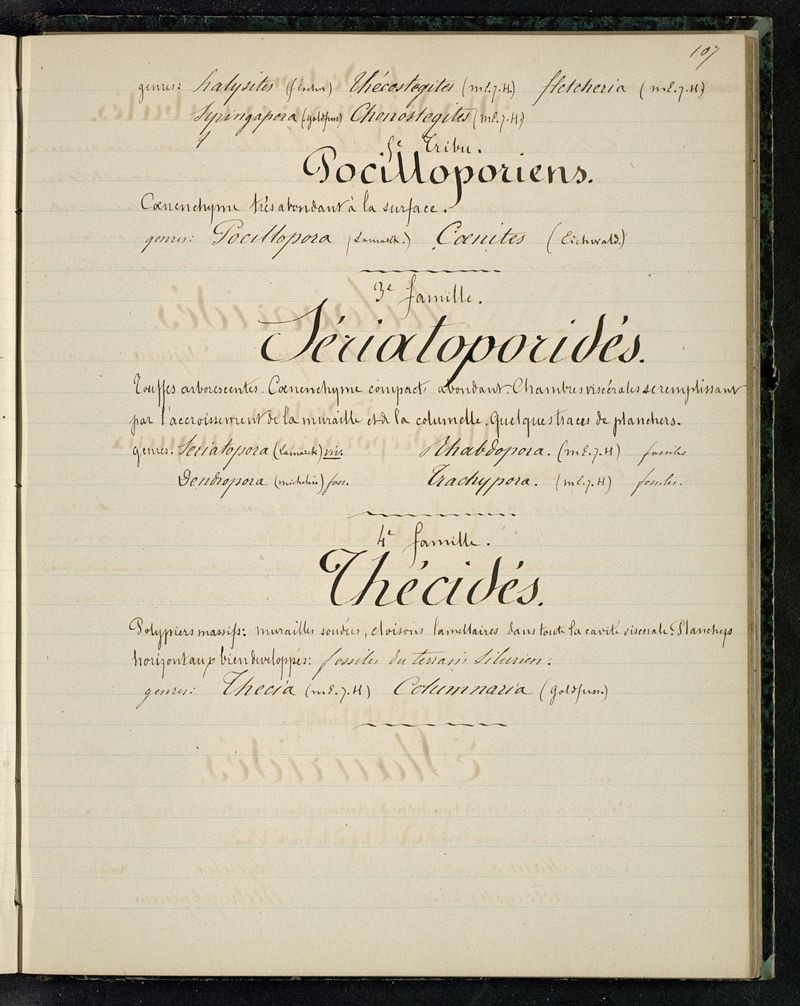 107
genres: halysites (fischer) Thécostegites (m.E.J.H) fletcheria (m.E.J.H)
Syringapora (goldfuss) Chonostegites (m.E.J.H)
5e Tribu.
Pocilloporiens.
Cœnenchyme très abondant à la surface.
genres: Pocillopora (Lamarck.) Cœnites (Eichwald.)
3e famille.
Sériatoporidés.
Touffes arborescentes. Cœnenchyme compact, abondant. Chambres viscérales se remplissant
par l'accroissement de la muraille et de la columelle. Quelques traces de planchers.
genres: Seriatopora (Lamarck) viv. Rhabdopora. (m.E.J.H) fossiles
Dendropora (michelin) foss. Trachypora. (m.E.J.H) fossiles.
4e famille.
Thécidés.
Polypiers massifs: murailles soudées, cloisons lamellaires dans toute la cavité viscérale. Planchers
horizontaux bien developpés: fossiles du terrain Silurien:
genres: Thecia (m.E.J.H) Columnaria (Goldfuss.)